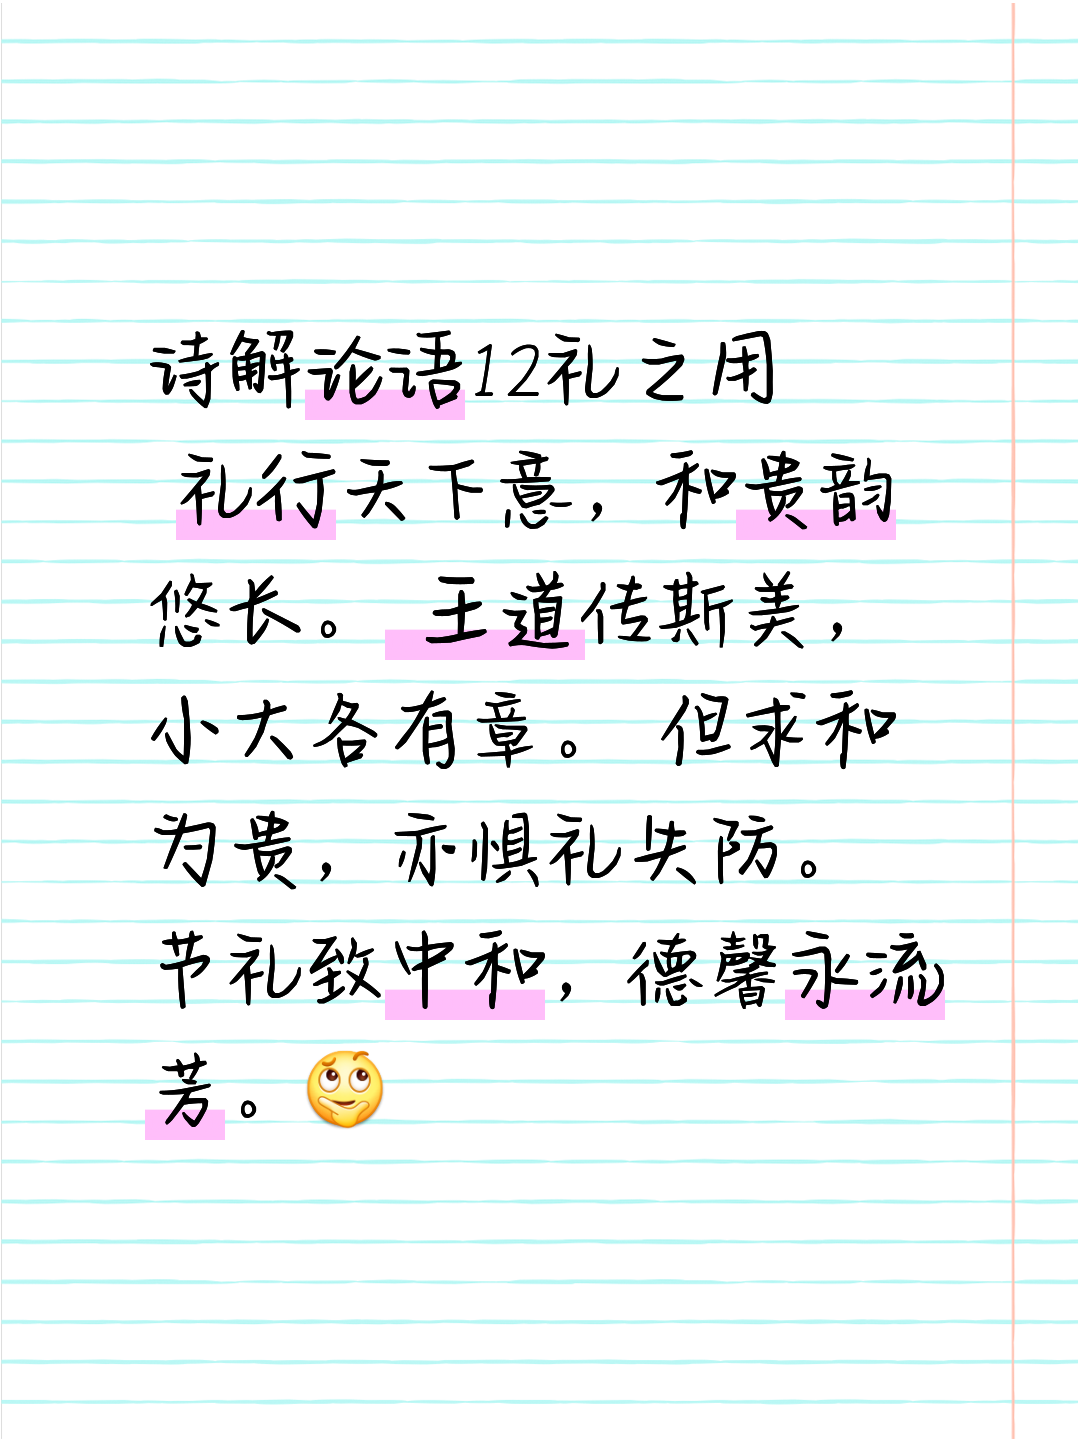 诗解论语12礼之用
礼行天下意，和贵韵
悠长。 王道传斯美，
小大各有章。 但求和
为贵，亦惧礼失防。
节礼致中和，德馨永流
芳。🤔